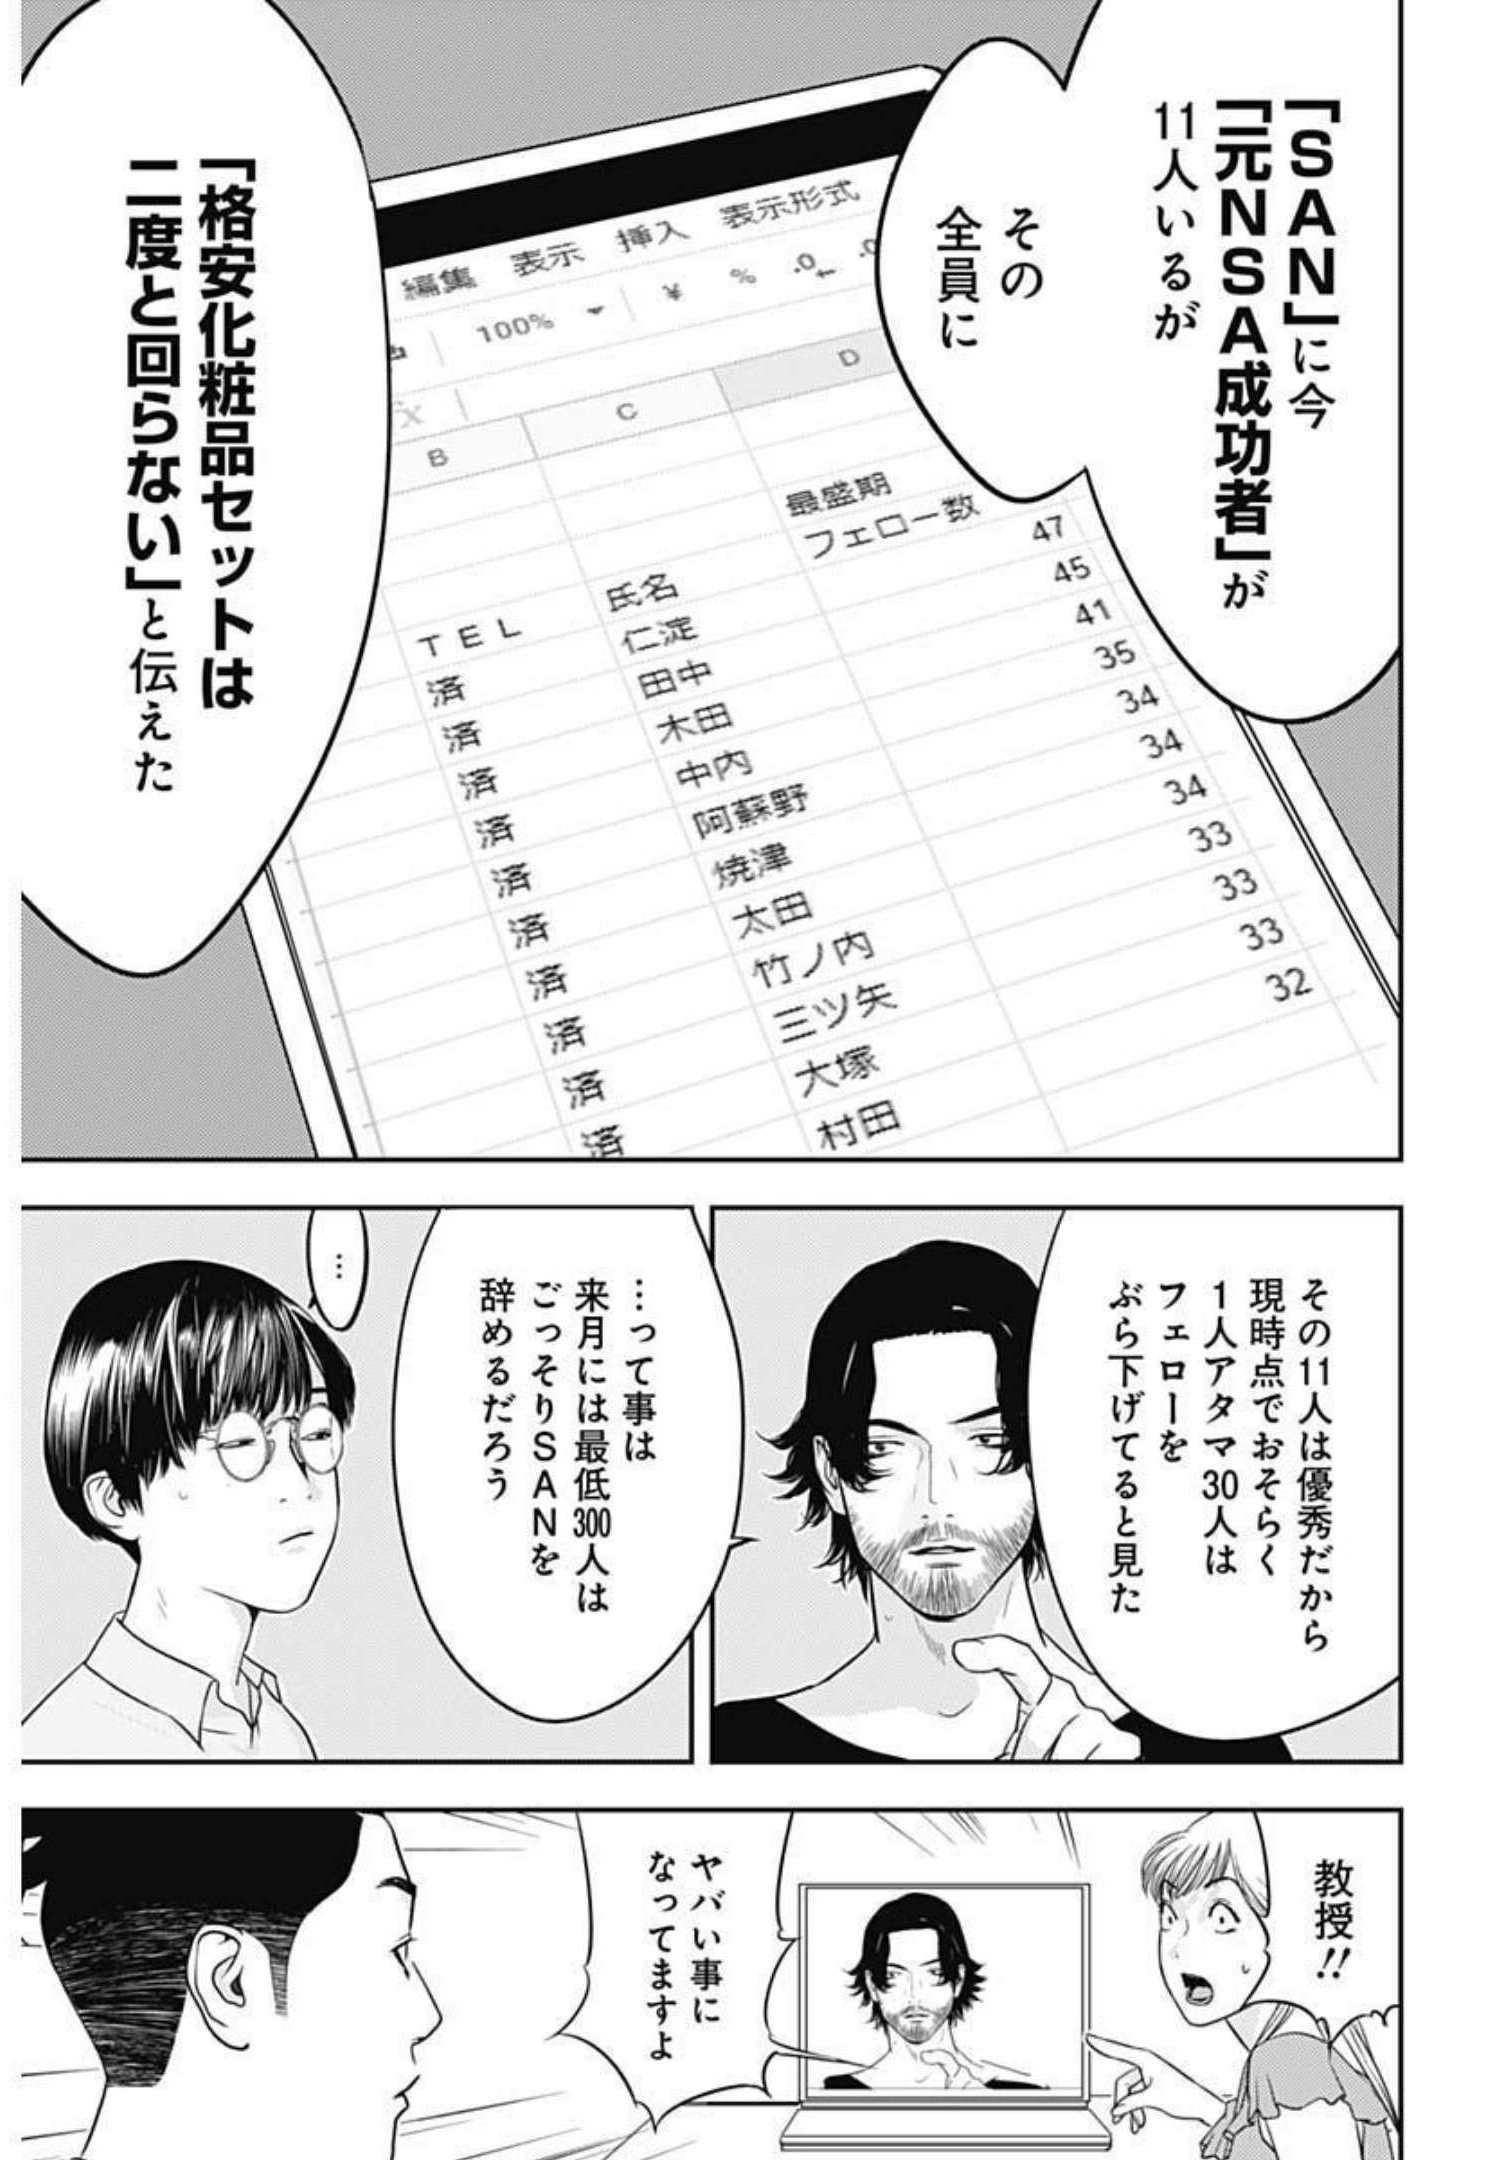 「SAN」に今
「元NSA成功者」が
11人いるが
その
全員に
「格安化粧品セットは
二度と回らない」と伝えた
編集 表示 挿入 表示形式
100% ¥ % .0 .0
B C D
最盛期
フェロー数
TEL 氏名
済 仁淀 47
済 田中 45
済 木田 41
済 中内 35
済 阿蘇野 34
済 焼津 34
済 太田 34
済 竹ノ内 33
済 三ツ矢 33
済 大塚 33
村田 32
その11人は優秀だから
現時点でおそらく
1人アタマ30人は
フェローを
ぶら下げてると見た
…って事は
来月には最低300人は
ごっそりSANを
辞めるだろう
…
教授!!
ヤバい事に
なってますよ